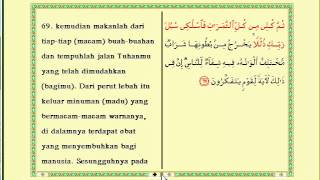 69. kemudian makanlah dari
tiap-tiap (macam) buah-buahan
dan tempuhlah jalan Tuhanmu
yang telah dimudahkan
(bagimu). Dari perut lebah itu
keluar minuman (madu) yang
bermacam-macam warnanya,
di dalamnya terdapat obat
yang menyembuhkan bagi
manusia. Sesungguhnya pada
ثُمَّ كُلِى مِن كُلِّ ٱلثَّمَرَٰتِ فَٱسْلُكِى سُبُلَ
رَبِّكِ ذُلُلًا ۚ يَخْرُجُ مِنۢ بُطُونِهَا شَرَابٌ
مُّخْتَلِفٌ أَلْوَٰنُهُۥ فِيهِ شِفَآءٌ لِّلنَّاسِ ۗ إِنَّ فِى
ذَٰلِكَ لَءَايَةً لِّقَوْمٍ يَتَفَكَّرُونَ ٦٩